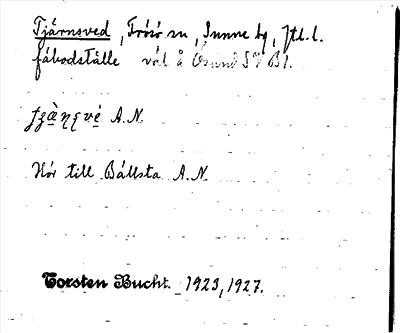 Tjärnsved, Frösö sn, Sunne hg, Jtl. l.
fäbodställe väl å Ösund SV Bl.
A.N.
Hör till Bállsta A.N.
Torsten Bucht. 1923, 1927.